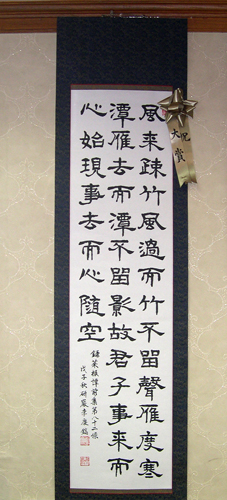 風来疎竹風過而竹不留聲雁度寒
潭雁去而潭不留影故君子事来而
心始現事去而心随空
録菜根譚前集第八十二條
戊子秋研
大賞